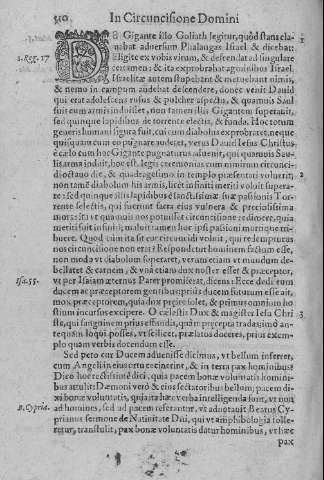 510 In Circuncisione Domini
DE Gigante illo Goliath legitur, quòd stans cla-
mabat adversum Phalangas Israel & dicebat:
Eligite ex vobis virum, & descendat ad singulare
certamen: & ita exprobrabat agminibus Israel.
Israelitæ autem stupebant & metuebant nimis,
& nemo in campum audebat descendere, donec venit Dauid
qui erat adolescens rufus & pulcher aspectu, & quamuis Saul
suis eum armis induisset, non tamen illis Gigantem superauit,
sed quinque lapidibus de torrente electis, & funda. Hoc totum
generis humani figura fuit, cui cum diabolus exprobraret, neque
quisquam cum eo pugnare auderet, verus Dauid Iesus Christus
è cælo cum hoc Gigante pugnaturus aduenit, qui quamuis Sau-
lis arma induit, hoc est. legis ceremonias cum nimirum circunci-
di octauo die, & quadragesimo in templo præsentari voluerit;
non tamē diabolum his armis, licet infiniti meriti voluit supera-
re: sed quinque istis lapidibus è sanctissimæ suæ passionis Tor-
rente selectis, qui fuerunt sacra eius vulnera & preciosissima
mors: ita vt quamuis nos potuisset circuncisione redimere, quia
meriti fuit infiniti; maluit tamen hoc ipsi passioni morique tri-
buere. Quod cùm ita sit cur circuncidi voluit, qui redempturus
nos circuncisione non erat? Respondetur hominem factum esse,
non modo vt diabolum superaret, verum etiam vt mundum de-
bellaret & carnem, & vnà etiam dux noster esset & præceptor,
vt per Isaiam æternus Pater promiserat, dicens: Ecce dedi eum
ducem ac præceptorem gentibus: prius ducem futurum esse ait,
mox præceptorem, quia dux præire solet, & primus omnium ho-
stium incursus excipere. O cælestis Dux & magister Iesu Chri
ste, qui sanguinem prius effundis, quàm præcepta tradas: imò an-
tequam loqui posses, vt scilicet, prælatus doceres, prius exem-
plo quam verbis docendum esse.
Sed peto cur Ducem aduenisse dicimus, vt bellum inferret,
cum Angeli in eius ortu cecinerint, & in terra pax hominibus?
Dico hoc rectissimè dici, quia pacem bonæ voluntatis homini-
bus attulit: Dæmoni verò & eius sectatoribus bellum; pacem di-
xi bonæ voluntatis, quia ita hæc verba intelligenda sunt, vt non
ad homines, sed ad pacem referantur, vt adnotauit Beatus Cy-
prianus sermone de Natiuitate Dñi, qui vt amphibologia tolle-
retur, transtulit, pax bonæ voluntatis datur hominibus, vt hæc
pax
1. Reg. 17
Isa. 55.
B. Cypria.
1
2
3